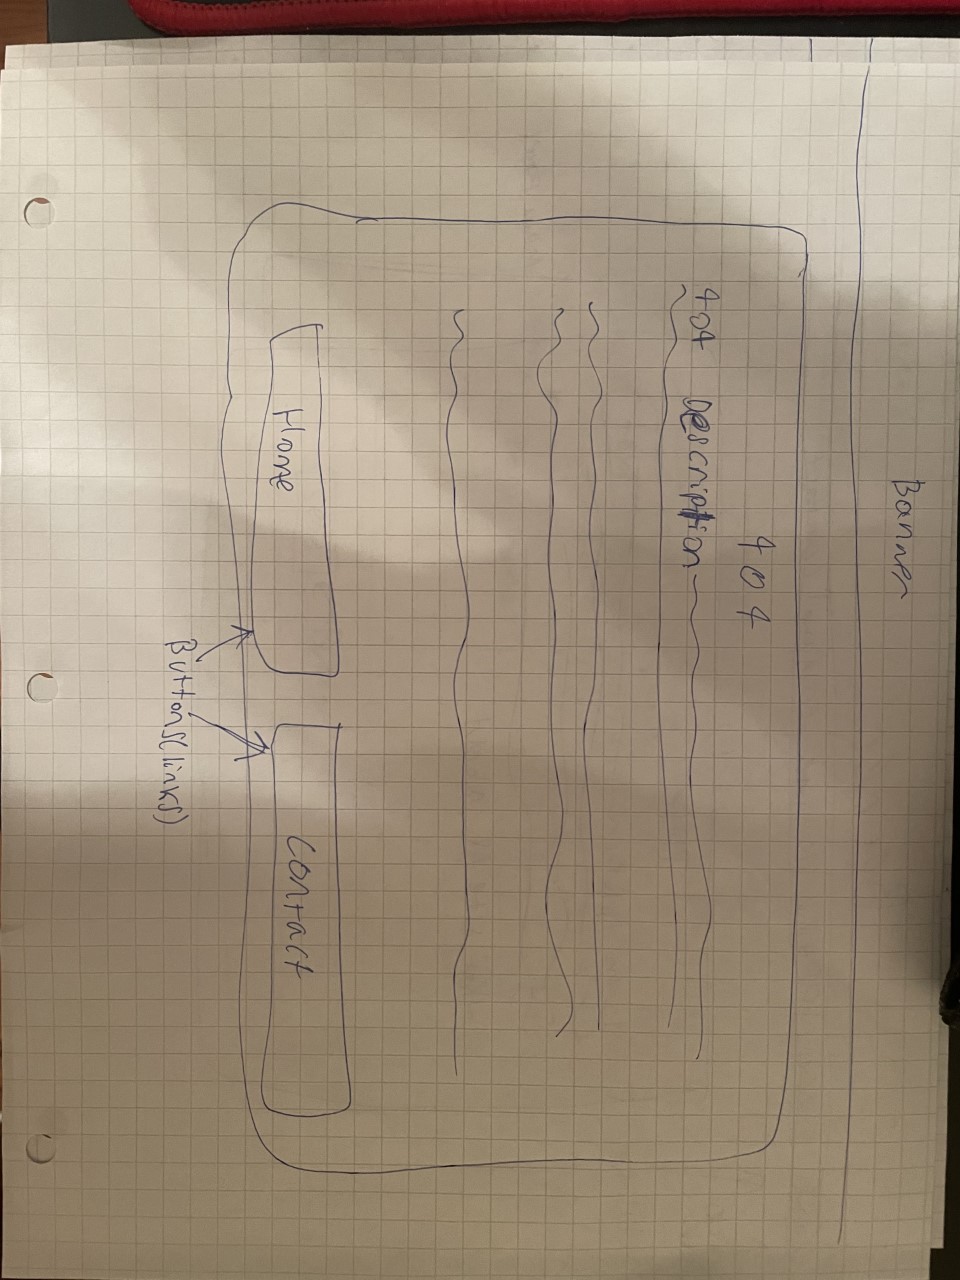 Banner
404
404 Description
Home
Contact
Buttons(links)